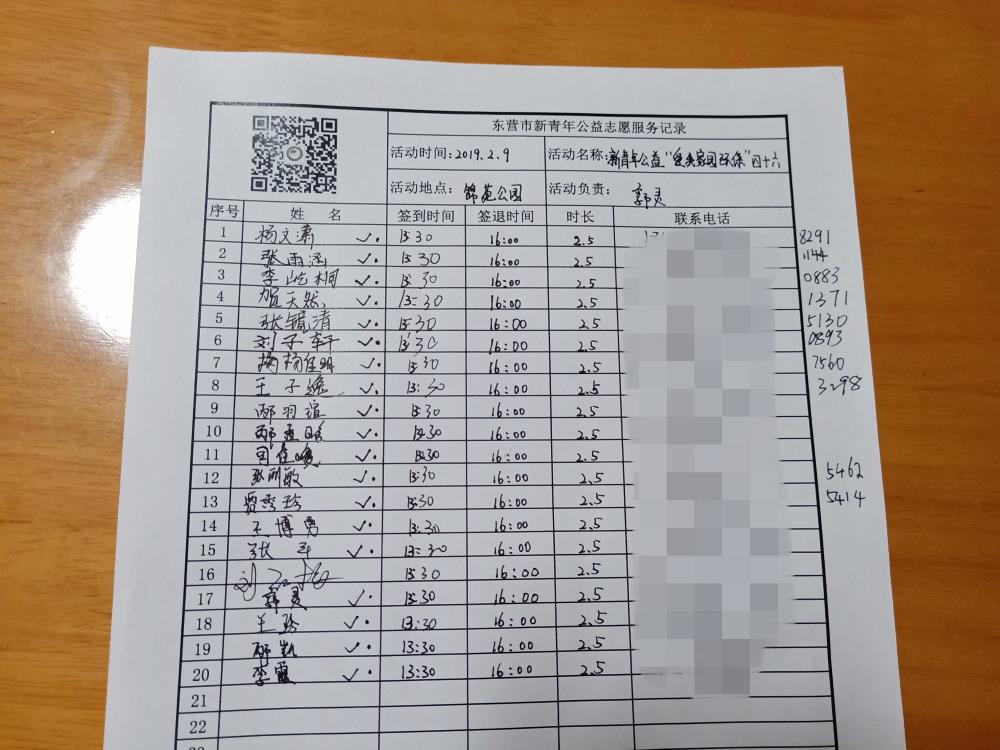 东营市新青年公益志愿服务记录
活动时间:2019.2.9 活动名称:新青年公益“家园环保”四十六
活动地点: 锦苑公园 活动负责: 郭灵
序号 姓 名 签到时间 签退时间 时长 联系电话
1 杨文潇 ✓. 13:30 16:00 2.5 8291
2 张雨涵 ✓. 13:30 16:00 2.5 1144
3 李屹桐 ✓. 13:30 16:00 2.5 0883
4 贺天然 ✓. 13:30 16:00 2.5 1371
5 张毓清 ✓. 13:30 16:00 2.5 5130
6 刘子轩 ✓. 13:30 16:00 2.5 0893
7 杨佳明 ✓. 13:30 16:00 2.5 7560
8 王子 ✓. 13:30 16:00 2.5 3298
9 邴羽谊 ✓. 13:30 16:00 2.5
10 ✓. 13:30 16:00 2.5
11 ✓. 13:30 16:00 2.5
12 张丽敏 ✓. 13:30 16:00 2.5 5462
13 贾秀珍 ✓. 13:30 16:00 2.5 5414
14 王博勇 ✓. 13:30 16:00 2.5
15 张 ✓. 13:30 16:00 2.5
16 刘 13:30 16:00 2.5
17 郭灵 ✓. 13:30 16:00 2.5
18 王珍 ✓. 13:30 16:00 2.5
19 邴凯 ✓. 13:30 16:00 2.5
20 李霞 ✓. 13:30 16:00 2.5
21
22